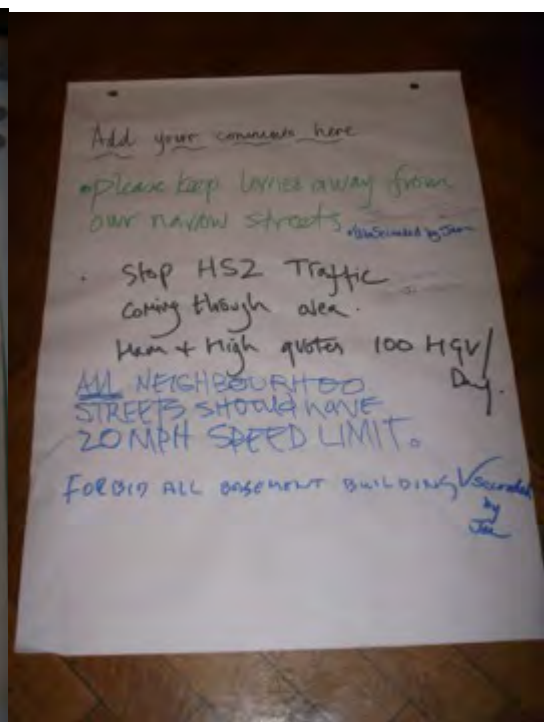 Add your comments here
• Please keep lorries away from
our narrow streets. Seconded by
• Stop HS2 Traffic
Coming through area.
Ham + High quotes 100 HGV/
Day.
ALL NEIGHBOURHOO
STREETS SHOULD HAVE
20 MPH SPEED LIMIT.
FORBID ALL BASEMENT BUILDING √ Seconded
by